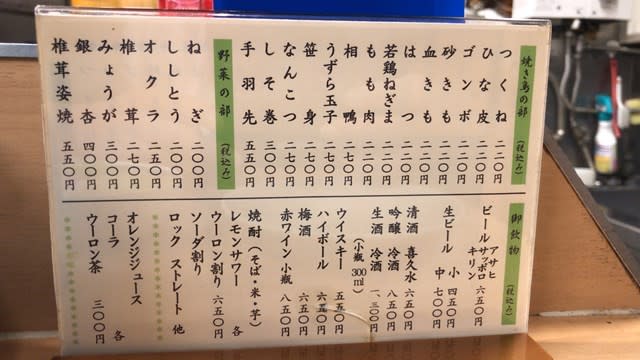 焼き鳥の部 (税込み)
つくね 二二〇円
ひな皮 二二〇円
ゴンボ 二二〇円
砂きも 二二〇円
血きも 二二〇円
はつ 二二〇円
若鶏ねぎま 二二〇円
もも肉 二二〇円
相鴨 二七〇円
うずら玉子 二七〇円
笹身 二七〇円
なんこつ 二七〇円
しそ巻 三〇〇円
手羽先 五五〇円
野菜の部 (税込み)
ねぎ 二〇〇円
ししとう 二〇〇円
オクラ 二五〇円
椎茸 二七〇円
みょうが 三〇〇円
銀杏 四〇〇円
椎茸姿焼 五五〇円
御飲物 (税込み)
アサヒ
ビール サッポロ 六五〇円
キリン
生ビール 小 四五〇円
中 七〇〇円
清酒 喜久水 六五〇円
吟醸 冷酒 八五〇円
生酒 冷酒 一、三〇〇円
(小瓶 300ml)
ウイスキー 五五〇円
ハイボール 六五〇円
梅酒 六五〇円
赤ワイン 小瓶 八五〇円
焼酎 (そば・米・芋)
レモンサワー 各
ウーロン割り 六五〇円
ソーダ割り
ロック ストレート 他
オレンジジュース
コーラ 各
ウーロン茶 三〇〇円